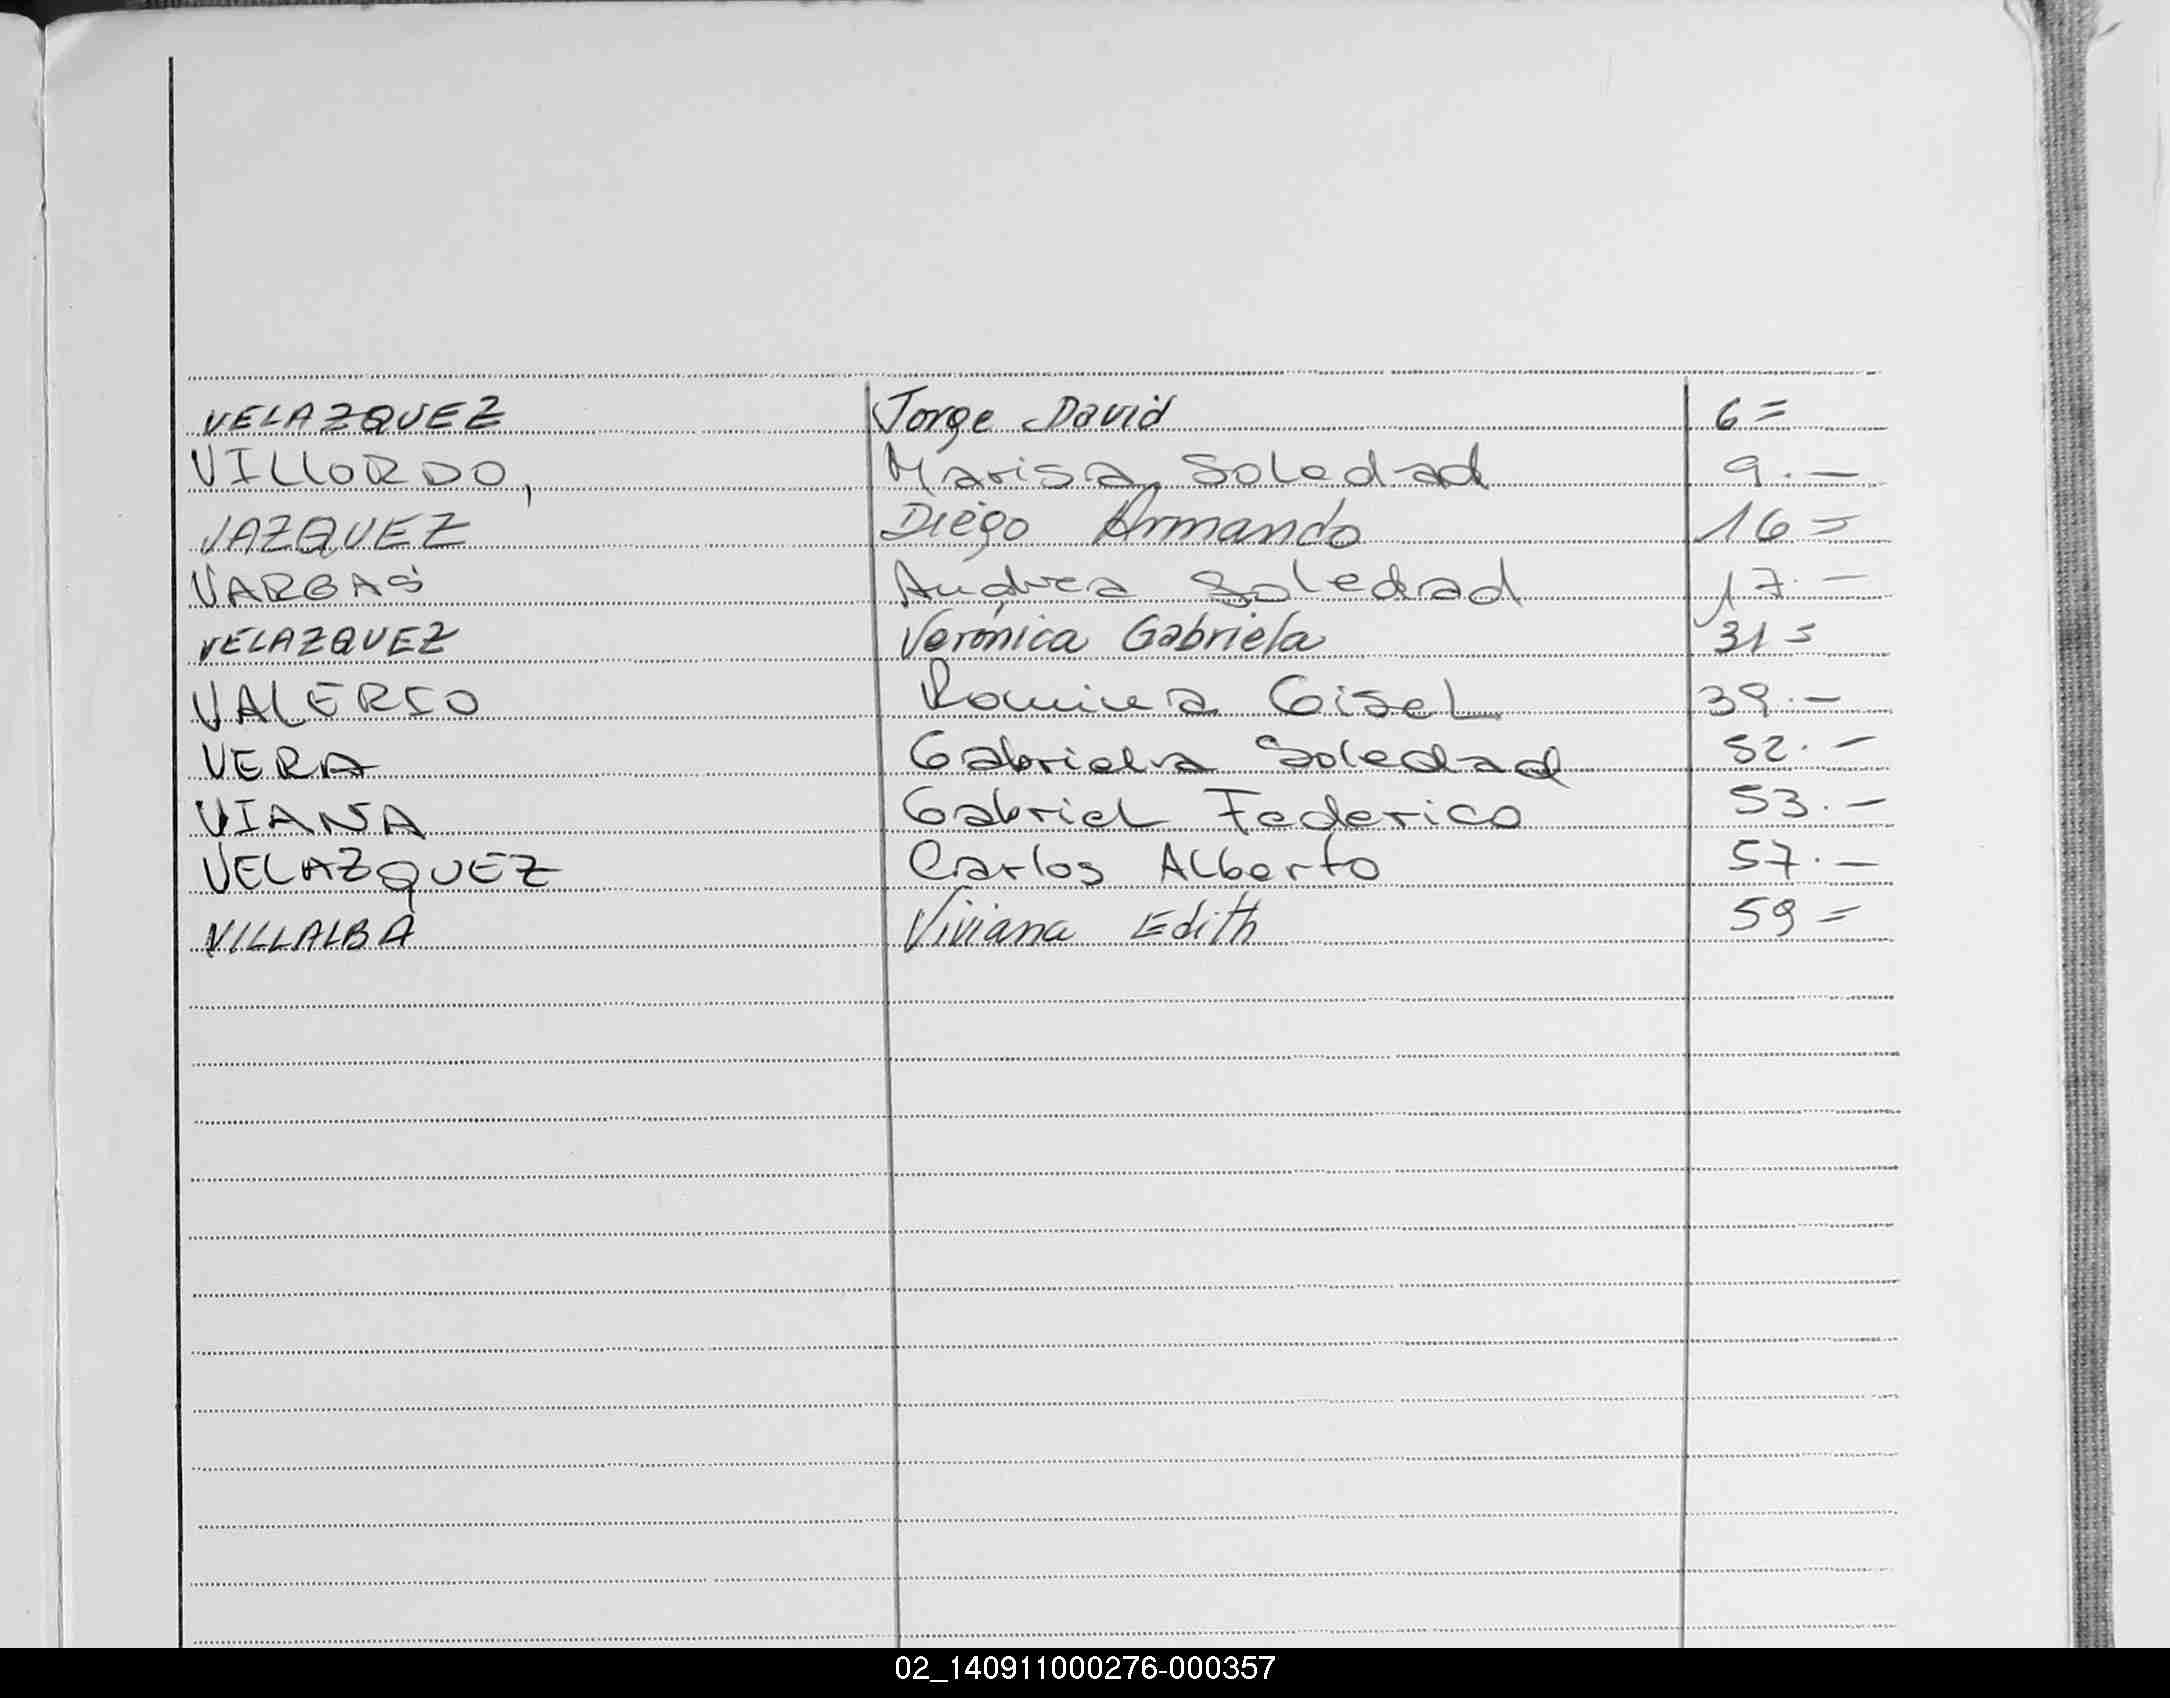 VELAZQUEZ Jorge David 6=
VILLORDO, Marisa Soledad 9.-
VAZQUEZ Diego Armando 16=
VARGAS Andrea Soledad 17.-
VELAZQUEZ Verónica Gabriela 31=
VALERIO Romina Gisel 39.-
VERA Gabriela Soledad 52.-
VIANA Gabriel Federico 53.-
VELAZQUEZ Carlos Alberto 57.-
VILLALBA Viviana Edith 59=
02_140911000276-000357